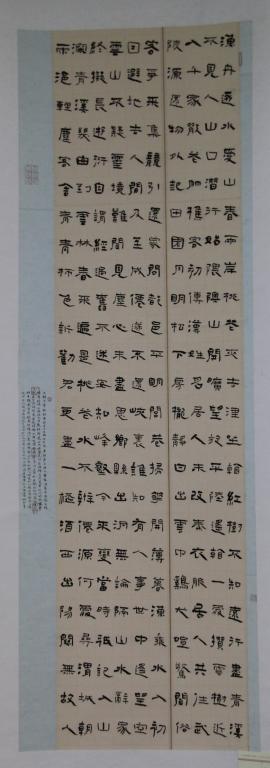 漁舟逐水愛山春兩岸桃花夾去津坐看紅樹不知遠行盡青溪
不見人山口潛行始隈隩山開曠望旋平陸遙看一處攢雲樹近
入千家散花竹樵客初傳漢姓名居人未改秦衣服居人共住武
陵源還從物外起田園月明松下房櫳靜日出雲中雞犬喧驚聞俗
客爭來集競引還家問都邑平明閭巷掃花開薄暮漁樵乘水入初
因避地去人間及至成仙遂不還峽裏誰知有人事世中遙望空
雲山不疑靈境難聞見塵心未盡思鄉縣出洞無論隔山水辭家
終擬長遊衍自謂經過舊不迷安知峰壑今來變當時祇記入山
深青溪幾曲到雲林春來遍是桃花水不辨僊源何處尋渭城朝
雨浥輕塵客舍青青柳色新勸君更盡一杯酒西出陽關無故人